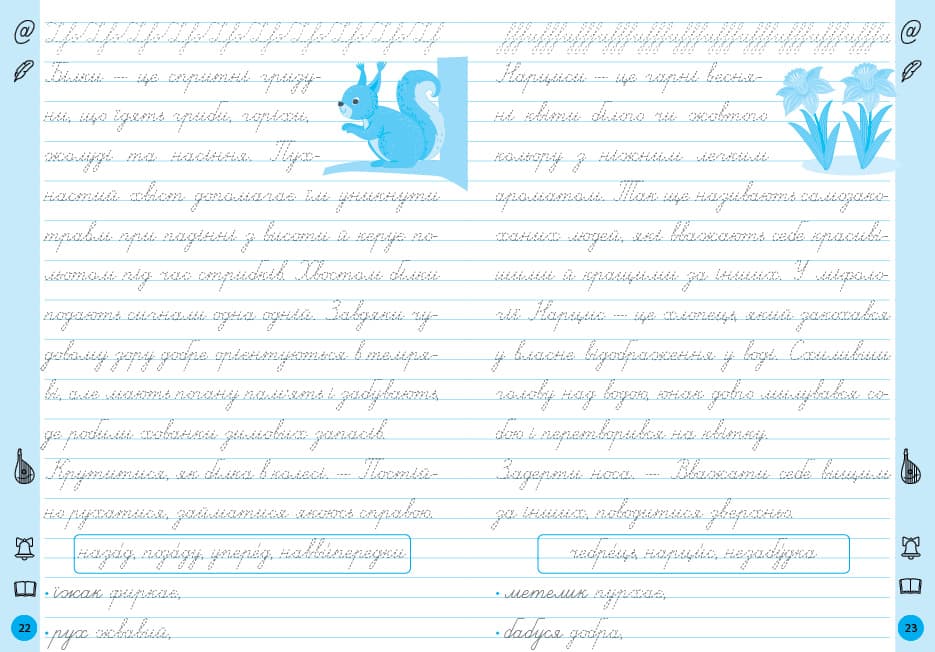 Білки — це спритні гризу-
ни, що їдять гриби, горіхи,
жолуді та насіння. Пух-
настий хвіст допомагає їм уникнути
травм при падінні з висоти й керує по-
льотом під час стрибків. Хвостом білки
подають сигнали одна одній. Завдяки чу-
довому зору добре орієнтуються в темря-
ві, але мають погану пам'ять і забувають,
де робили хованки зимових запасів.
Крутитися, як білка в колесі. — Постій-
но рухатися, займатися якоюсь справою.
наза́д, поза́ду, упере́д, навви́передки
• їжак фиркає,
• рух жвавий,
22
Нарциси — це гарні весня-
ні квіти білого чи жовтого
кольору з ніжним легким
ароматом. Так ще називають самозако-
ханих людей, які вважають себе красиві-
шими й кращими за інших. У міфоло-
гії Нарцис — це хлопець, який закохався
у власне відображення у воді. Схиливши
голову над водою, юнак довго милувався со-
бою і перетворився на квітку.
Задерти носа. — Вважати себе вищим
за інших, поводитися зверхньо.
чебре́ць, нарци́с, незабу́дка
• метелик пурхає,
• бабуся добра,
23